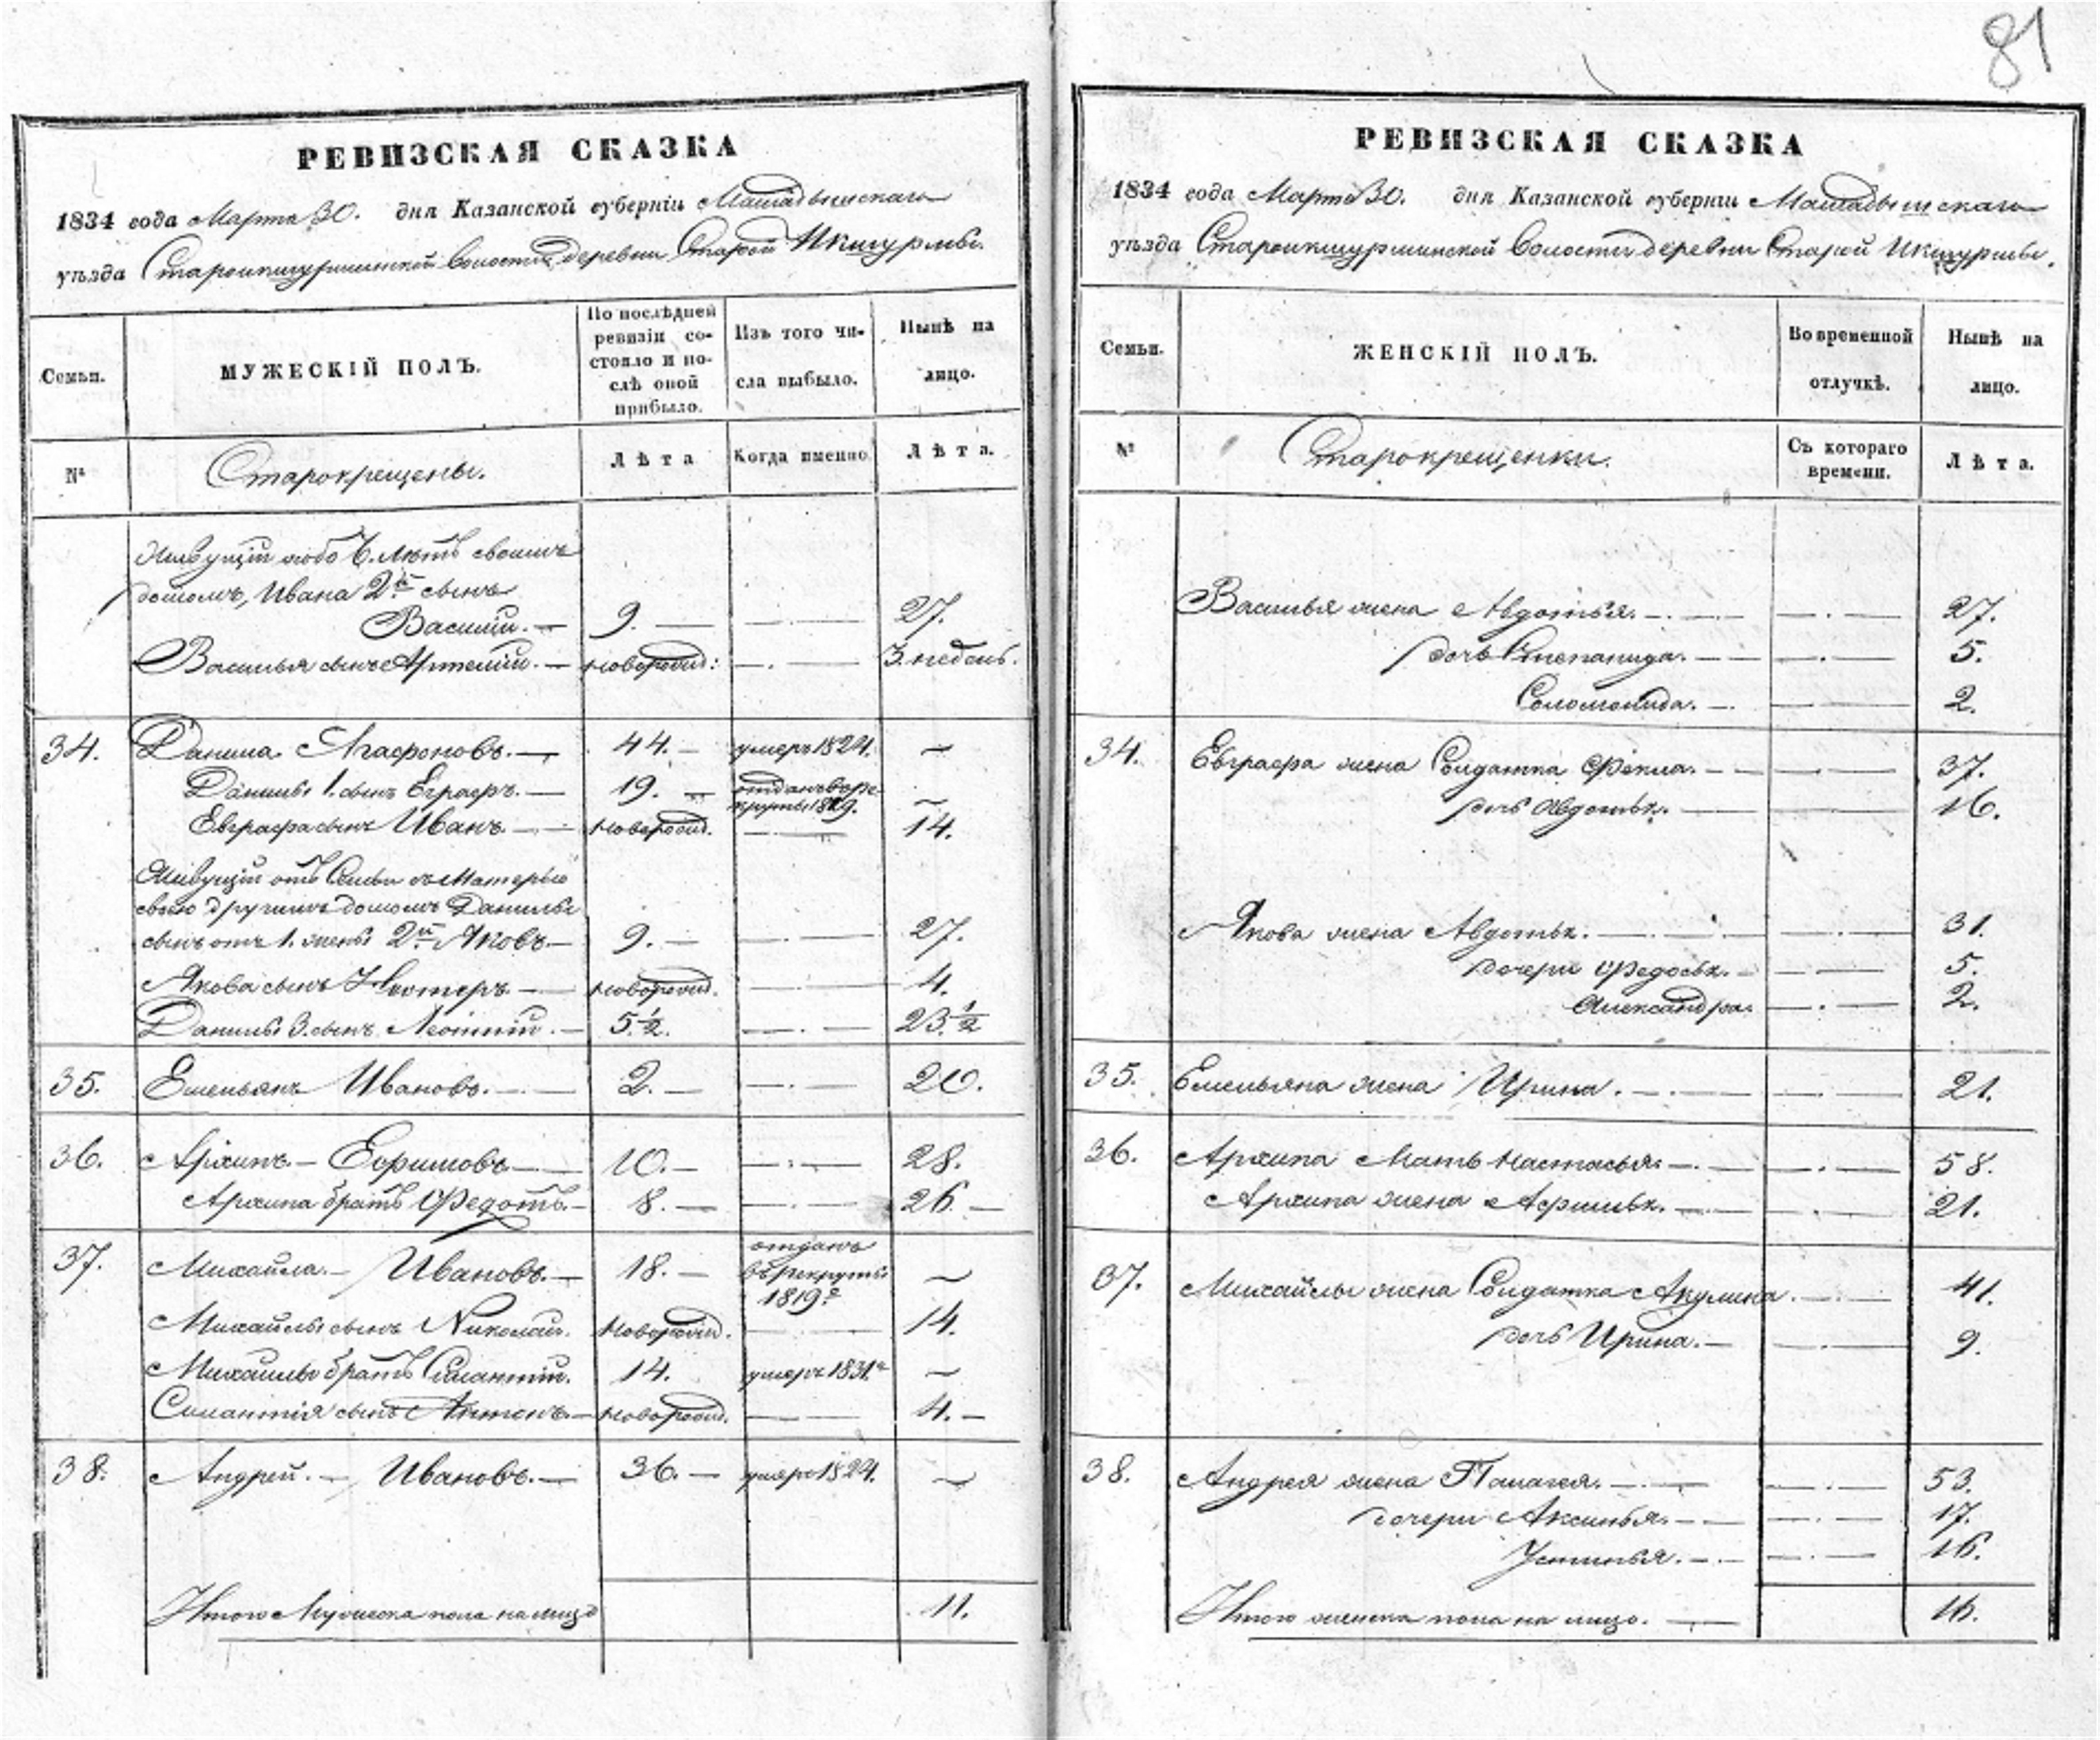 81
РЕВИЗСКАЯ СКАЗКА
1834 года Марта 30. дня Казанской губернiи Мамадышскаго
уѣзда Староикшурминской волости деревни Старой Икшурмы.
Семьи.
МУЖЕСКІЙ ПОЛЪ.
По послѣдней
ревизіи со-
стояло и по-
слѣ оной
прибыло.
Изъ того чи-
сла выбыло.
Нынѣ на
лицо.
№
Старокрещены.
Лѣта
Когда именно
Лѣта.
Живущій особо 6. лѣтъ своимъ
домомъ, Ивана 2й сынъ
Василий. — 9. — — 27.
Василья сынъ Артемій. — новорожд: — 3. недѣль.
34. Данила Агафоновъ. — 44. — умеръ 1824. —
Данилы 1. сынъ Еграфъ. — 19. — отданъ в ре-
круты 1819. —
Евграфа сынъ Иванъ. — новорожд. — 14.
Живущій отъ Семьи съ Матерью
своею другимъ домомъ Данилы
сынъ отъ 1. жены 2й Яковъ — 9. — — 27.
Якова сынъ Нестеръ. — новорожд. — 4.
Данилы 3. сынъ Леонтій. — 5.½. — 23.½
35. Емельянъ Ивановъ. — 2. — — 20.
36. Архипъ. — Ефимовъ — 10. — — 28.
Архипа братъ Федотъ. — 8. — — 26. —
37. Михайла. — Ивановъ. — 18. — отданъ
въ рекруты
1819.г —
Михайлы сынъ Николай. новорожд. — 14.
Михайлы братъ Силантій. 14. умеръ 1831.г —
Силантія сынъ Антонъ. — новорожд. — 4. —
38. Андрей. — Ивановъ. — 36. — умеръ 1824. —
Итого Мужеска пола на лицо 11.
РЕВИЗСКАЯ СКАЗКА
1834 года Марта 30. дня Казанской губернiи Мамадышскаго
уѣзда Староикшурминской волости деревни Старой Икшурмы.
Семьи.
ЖЕНСКІЙ ПОЛЪ.
Во временной
отлучкѣ.
Нынѣ на
лицо.
№
Старокрещенки.
Съ котораго
времени.
Лѣта.
Василья жена Авдотья. — — 27.
дочь Степанида. — — 5.
Соломонида. — — 2.
34. Евграфа жена Солдатка Фекла. — — 37.
дочь Авдотья. — — 16.
Якова жена Авдотья. — — 31.
дочери Федосья. — — 5.
Александра. — 2.
35. Емельяна жена Ирина. — — 21.
36. Архипа Мать Настасья. — — 58.
Архипа жена Афимья. — — 21.
37. Михайлы жена Солдатка Акулина. — 41.
дочь Ирина. — — 9.
38. Андрея жена Палагея. — — 53.
дочери Аксинья. — — 17.
Устинья. — — 16.
Итого женска пола на лицо. — 16.